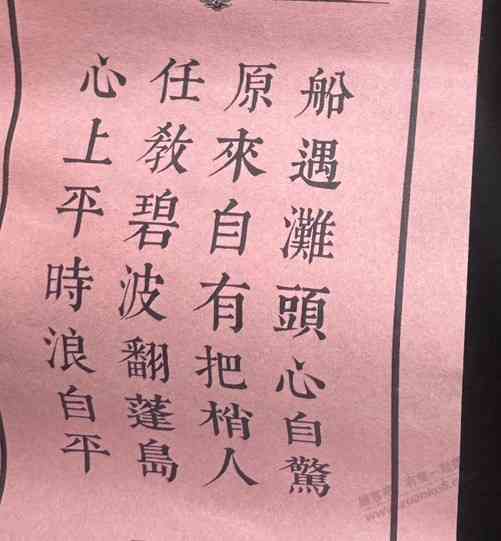 船遇灘頭心自驚
原來自有把梢人
任教碧波翻蓬島
心上平時浪自平